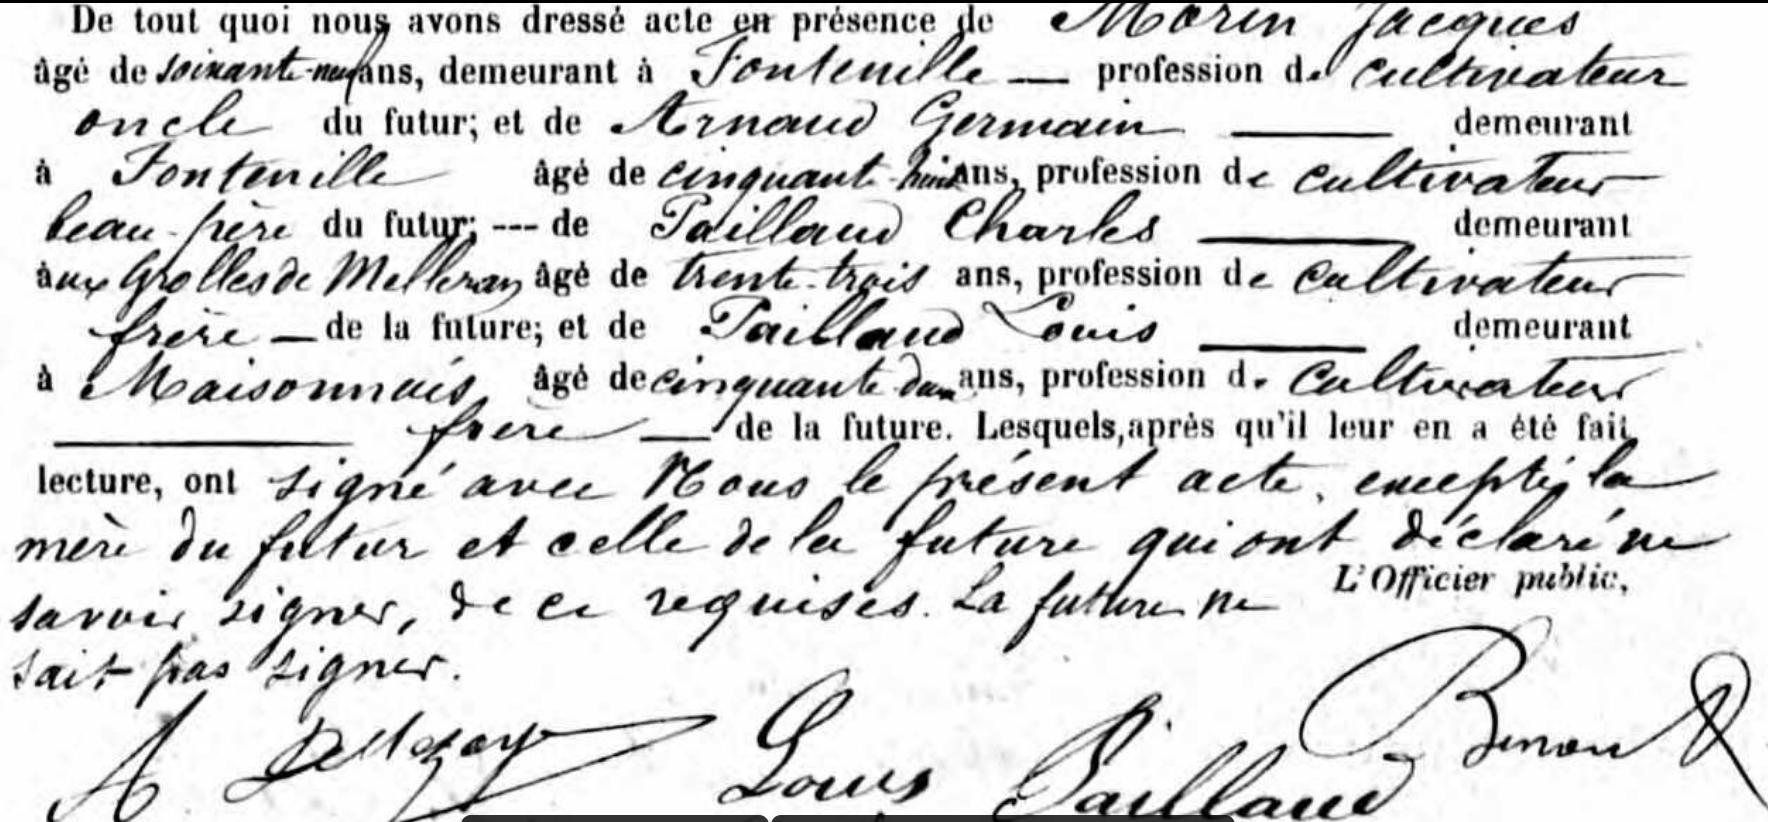 De tout quoi nous avons dressé acte en présence de Morin Jacques
âgé de soixante-neuf ans, demeurant à Fontenille — profession de cultivateur
oncle du futur; et de Arnaud Germain — demeurant
à Fontenille âgé de cinquante-huit ans, profession de cultivateur
beau-père du futur; --- de Paillaud Charles — demeurant
àux Grolles de Melleran âgé de trente-trois ans, profession de cultivateur
frère — de la future; et de Paillaud Louis — demeurant
à Maisonnais âgé de cinquante-deux ans, profession de cultivateur
— frère — de la future. Lesquels, après qu'il leur en a été fait
lecture, ont signé avec Nous le présent acte, excepté la
mère du futur et celle de la future qui ont déclaré ne
savoir signer, de ce requises. La future ne
L'Officier public,
sait pas signer.
Louis Paillaud